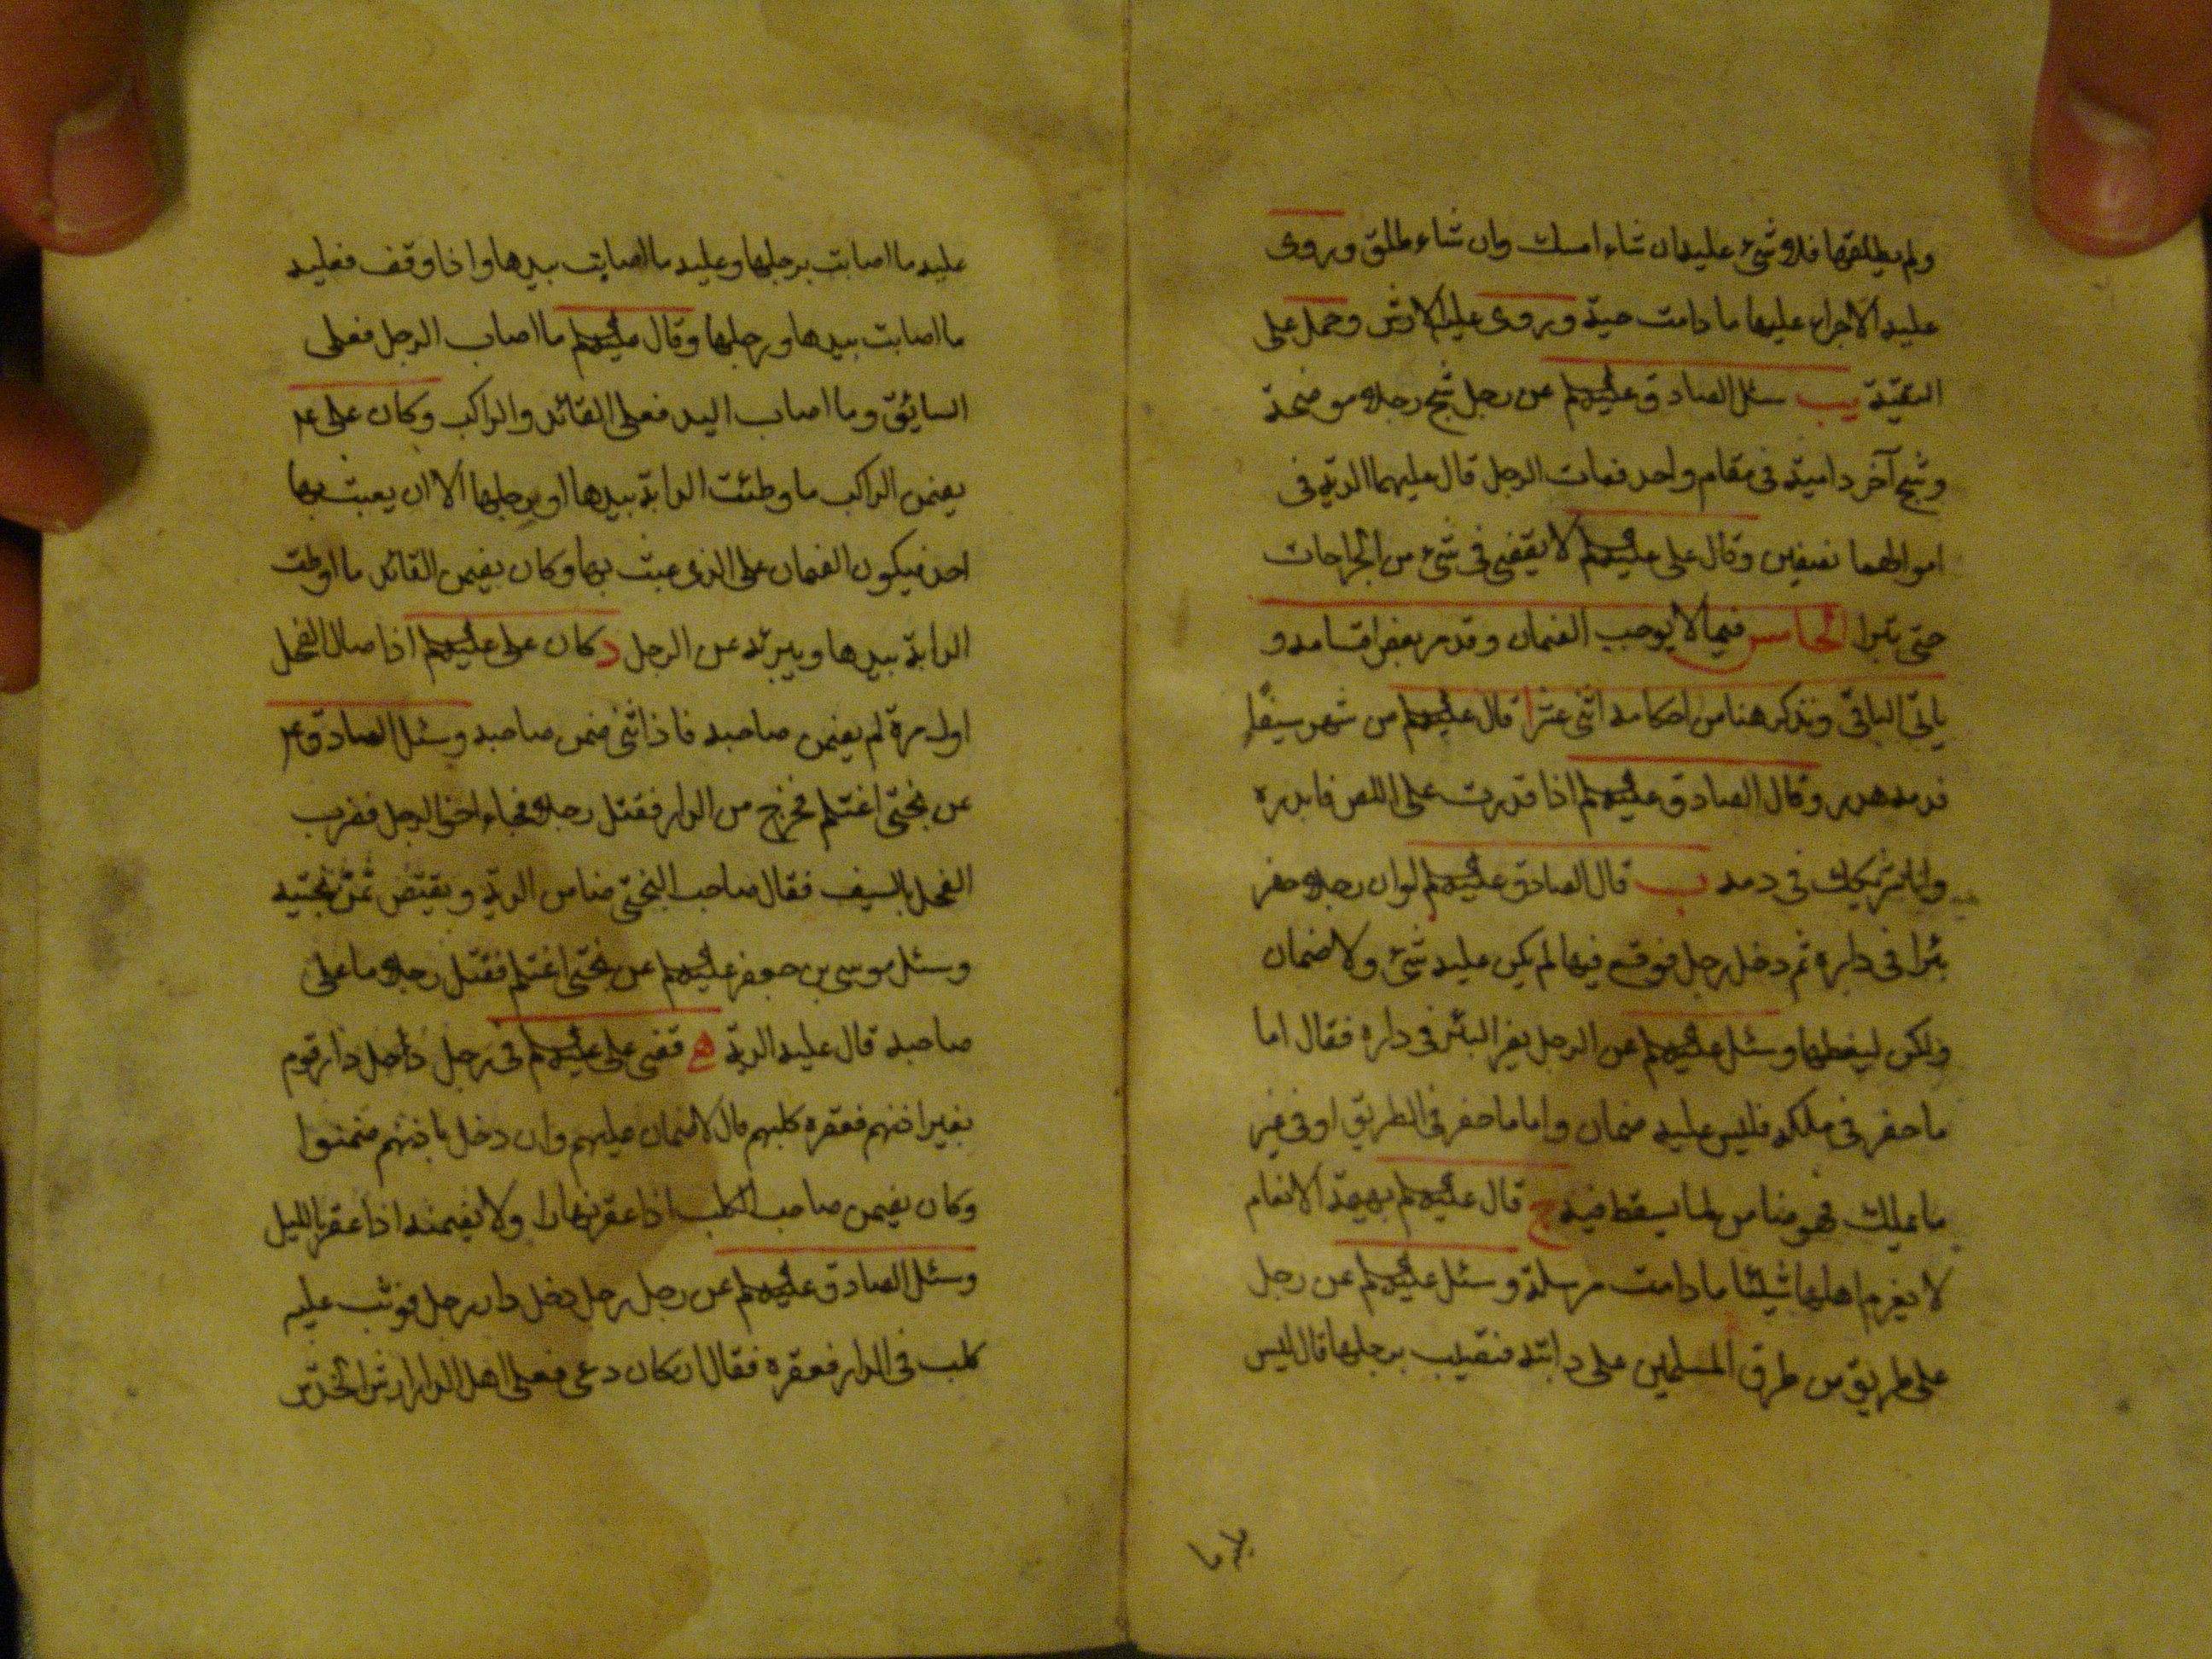 ولم يطلقها فلا شئ عليه ان شاء امسك وان شاء طلق وروى
عليه الاجراء عليها ما دامت حية وروى عليه الارش وحمل على
التقية يب سئل الصادق عليه‌السلم عن رجل شج رجلا موضحة
وشج آخر دامية فى مقام واحد فمات الرجل قال عليهما الدية فى
اموالهما نصفين وقال على عليه‌السلم لا يقضى فى شئ من الجراحات
حتى تبرا الخامس فيما لا يوجب الضمان وقد مر بعض اقسامه و
ياتى الباقى ونذكر هنا من احكامه اثنى عشر ا قال عليه‌السلم من شهر سيفا
فدمه هدر وقال الصادق عليه‌السلم اذا قدرت على اللص فابدره
وانا شريكك فى دمه ب قال الصادق عليه‌السلم لو ان رجلا حفر
بئرا فى داره ثم دخل رجل فوقع فيها لم يكن عليه شئ ولا ضمان
ولكن ليغطها وسئل عليه‌السلم عن الرجل يحفر البئر فى داره فقال اما
ما حفر فى ملكه فليس عليه ضمان واما ما حفر فى الطريق او فى غير
ما يملك فهو ضامن لما يسقط فيه ج قال عليه‌السلم بهيمة الانعام
لا يغرم اهلها شيئا ما دامت مرسلة وسئل عليه‌السلم عن رجل
على طريق من طرق المسلمين على دابته فتصيب برجلها قال ليس
عليه ما اصابت برجلها وعليه ما اصابت بيدها واذا وقف فعليه
ما اصابت بيدها ورجلها وقال عليه‌السلم ما اصاب الرجل فعلى
السايق وما اصاب اليد فعلى القائد والراكب وكان على ع
يضمن الراكب ما وطئت الدابة بيدها او برجلها الا ان يعبث بها
احد فيكون الضمان على الذى عبث بها وكان يضمن القائد ما اوطت
الدابة بيدها ويبرئه عن الرجل د كان على عليه‌السلم اذا صال الفحل
اول مرة لم يضمن صاحبه فاذا ثنى ضمن صاحبه وسئل الصادق ع
عن بختى اغتلم فخرج من الدار فقتل رجلا فجاء اخو الرجل فضرب
الفحل بالسيف فقال صاحب البختى ضامن الدية ويقتص ثمن بختيه
وسئل موسى بن جعفر عليه‌السلم عن بختى اغتلم فقتل رجلا ما على
صاحبه قال عليه الدية ه قضى على عليه‌السلم فى رجل داخل دار قوم
بغير اذنهم فعقره كلبهم قال لا ضمان عليهم وان دخل باذنهم ضمنوا
وكان يضمن صاحب الكلب اذا عقر نهارا ولا يضمنه اذا عقر بالليل
وسئل الصادق عليه‌السلم عن رجل رجل دخل دار رجل فوثب عليه
كلب فى الدار فعقره فقال ان كان دعى فعلى اهل الدار ارش الخدش